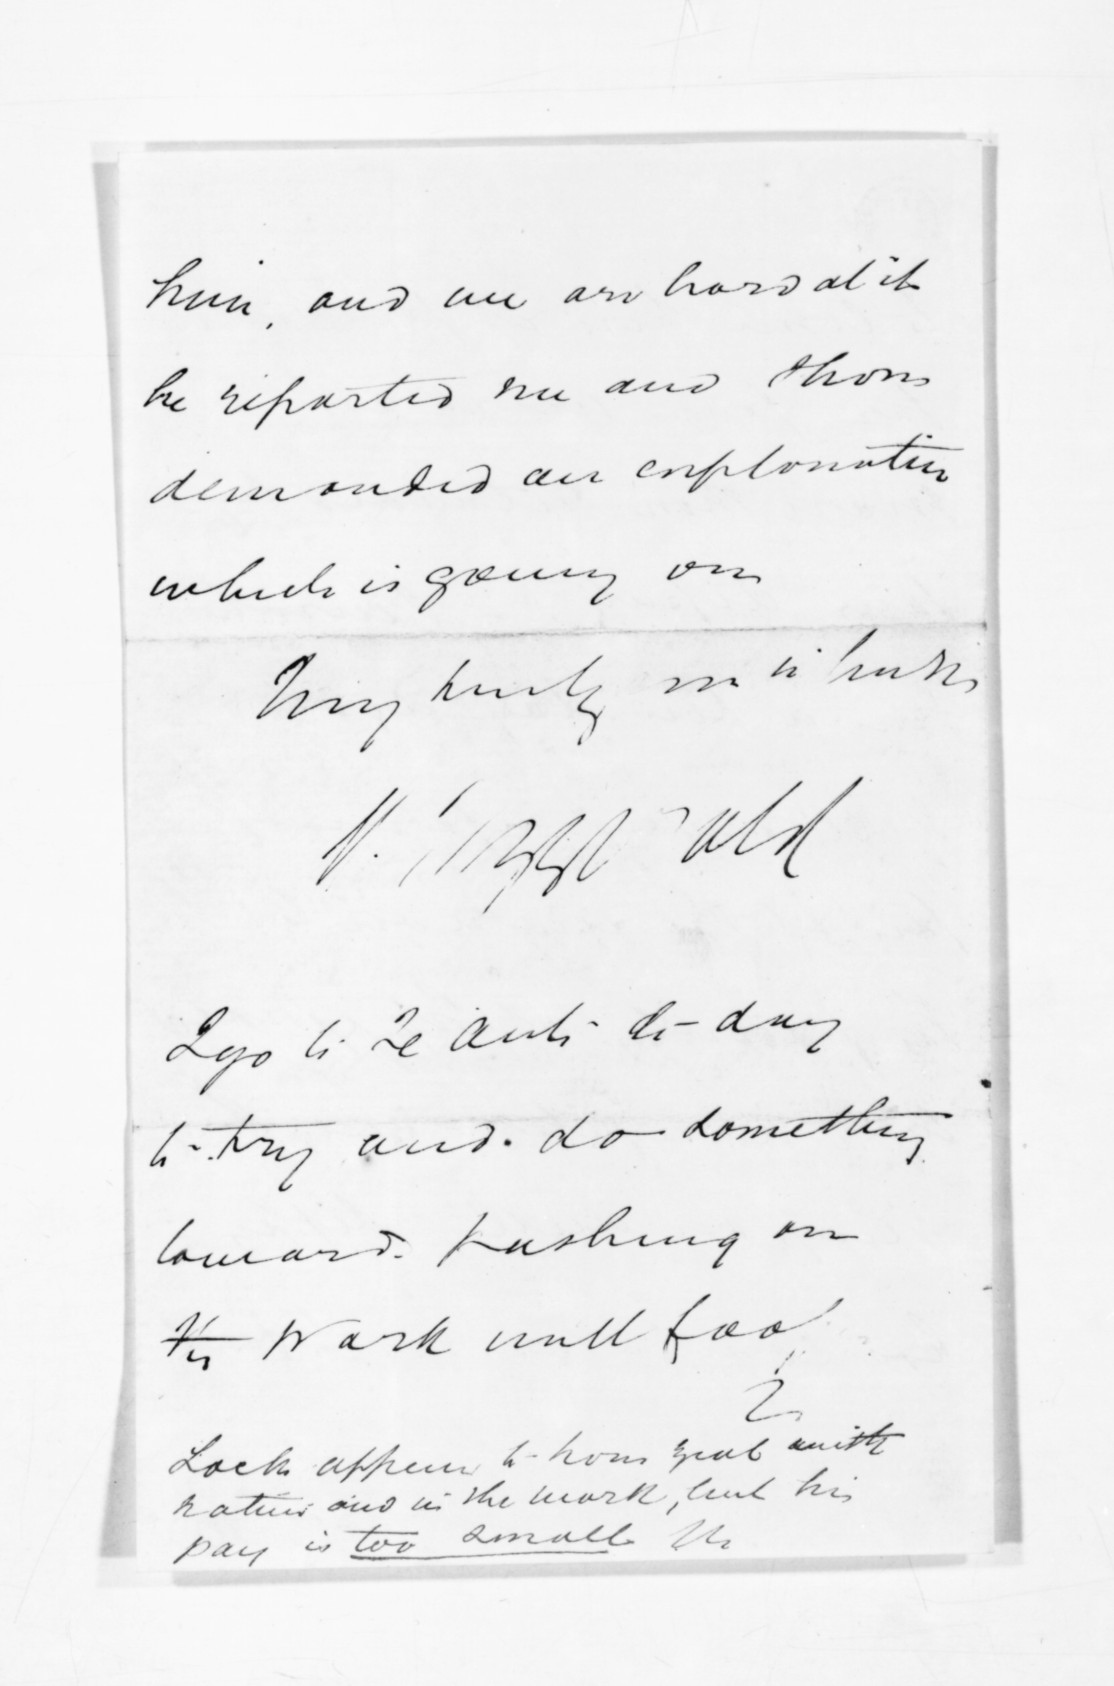 him, and we are hard at it
he reported me and I have
demanded an explanation
which is going on
Very truly in haste
N. Fitzgerald
I go to Te Aute to-day
to try and do something
toward pushing on
the work until food
Lock appears to have great
natives and in the work, but his
pay is too small